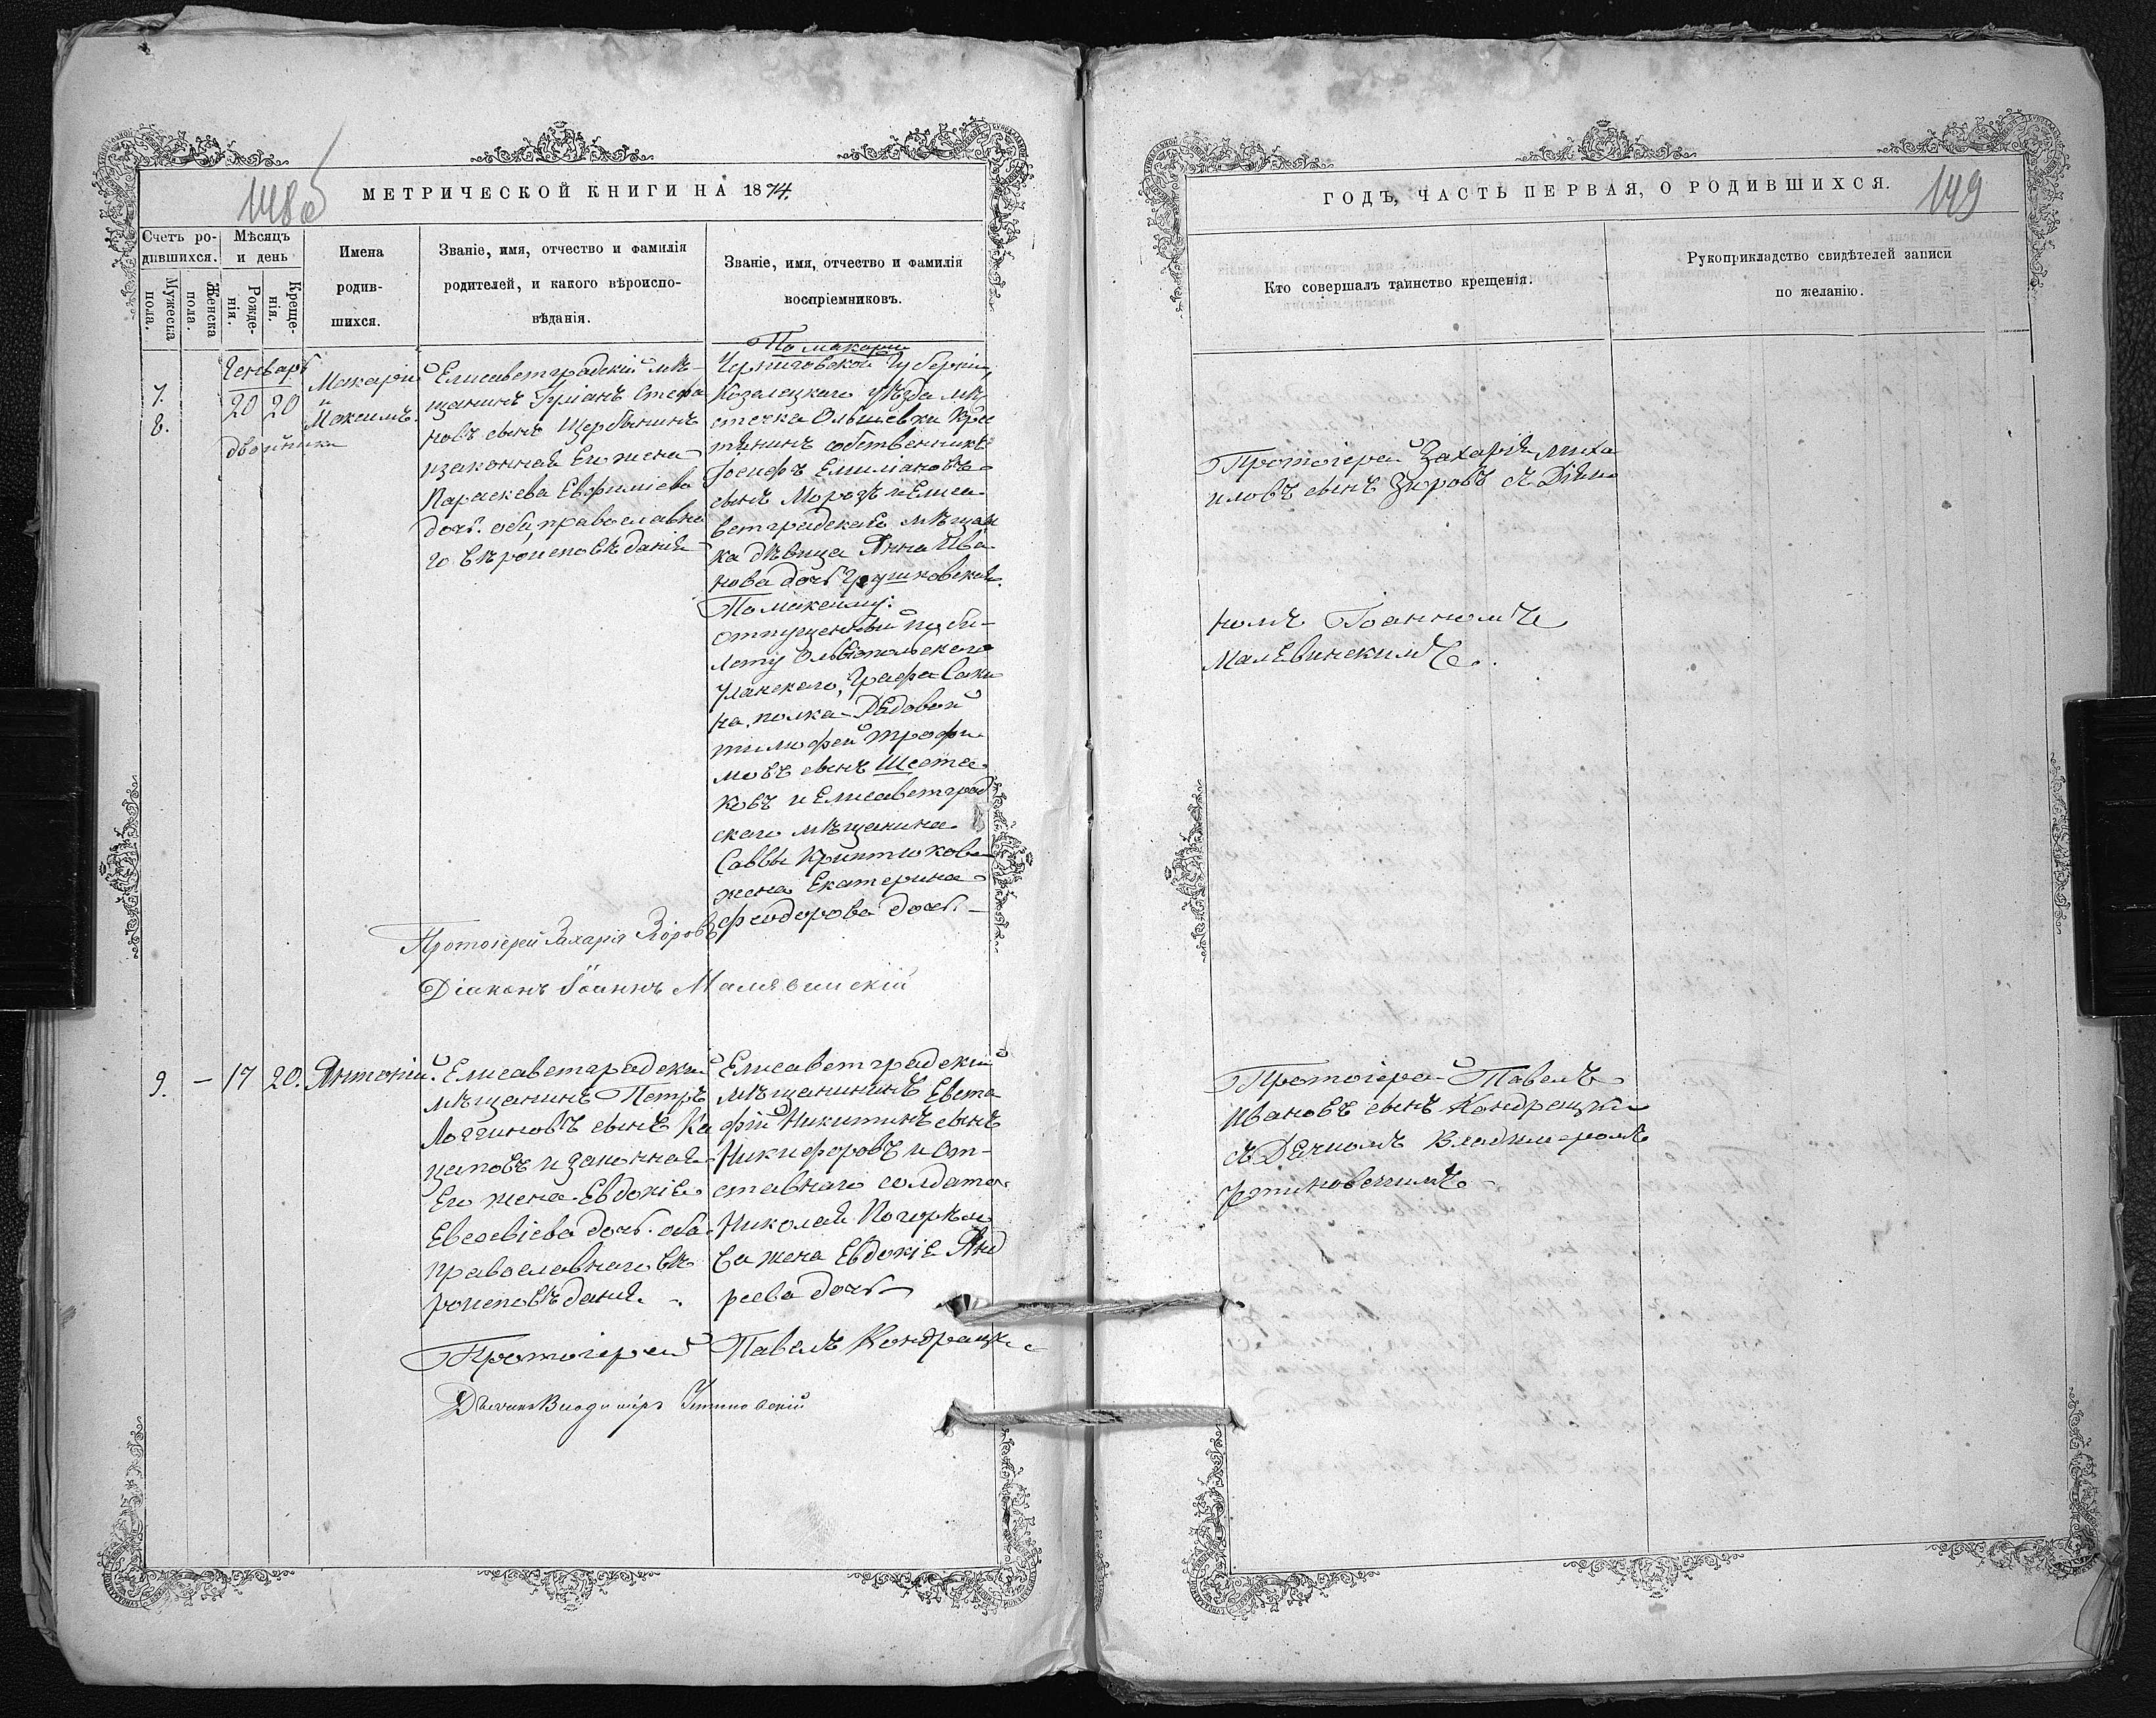 148об
МЕТРИЧЕСКОЙ КНИГИ НА 1874.
Счетъ ро-
дившихся.
Мужеска
пола.
Женска
пола.
Мѣсяцъ
и день
Рожде-
нія.
Креще-
нія.
Имена
родив-
шихся.
Званіе, имя, отчество и фамилія
родителей, и какого вѣроиспо-
вѣданія.
Званіе, имя, отчество и фамилія
воспріемниковъ.
7.
8.
Генварь
20 20
двойники
Макарій
и
Максимъ.
Елисаветградскій мѣ-
щанинъ Гуріанъ Стефа
новъ сынъ Щербынинъ
изаконная Его жена
Параскева Евфиміева
дочь. оба, православна
го вѣроисповѣданія
По макарію
Черниговской Губерніи,
Козелецкаго уѣзда мѣ
стечка Ольшевки Крес
тянинъ собственникъ
Іосифъ Емиліановъ
сынъ Морозъ и Елиса
ветградская мѣщан
ка дѣвица Анна Ива
нова дочь Грушковская.
По максиму:
отпущенный по би-
лету Ольвіопольскаго
Уланскаго, Графа Саке
на, полка Рядовой
тимофей трофи
мовъ сынъ Шеста
ковъ и Елисаветград
скаго мѣщанина
Саввы Крутикова
жена Екатерина
феодорова дочь. –
Протоіерей Захарія Зоровъ
Діаконъ Іоаннъ Малявинскій
9. – 17 20. Антоній.
Елисаветградскій
мѣщанинъ Петръ
Логгиновъ сынъ Ка
цаповъ и законная
Его жена Евдокія
Евсевіева дочь. оба
православнаго вѣ
роисповѣданія. –.
Елисаветградскій
мѣщанинъ Евста
фій Никитинъ сынъ
Никифоровъ и от-
ставнаго солдата
Николая Погорѣло
ва жена Евдокія Анд
реева дочь –
Протоіерей Павелъ Кондрацкій
Діаконъ Владиміръ Устиновскій
ГОДЪ, ЧАСТЬ ПЕРВАЯ, О РОДИВШИХСЯ.
149
Кто совершалъ таинство крещенія.
Рукоприкладство свидѣтелей записи
по желанію.
Протоіерей Захарія, миха
иловъ сынъ Зоровъ съ Діяко
номъ Іоанномъ
Малевинскимъ.
Протоіерей Павелъ
Ивановъ сынъ Кондрацкій
съ Дячномъ Владимеромъ